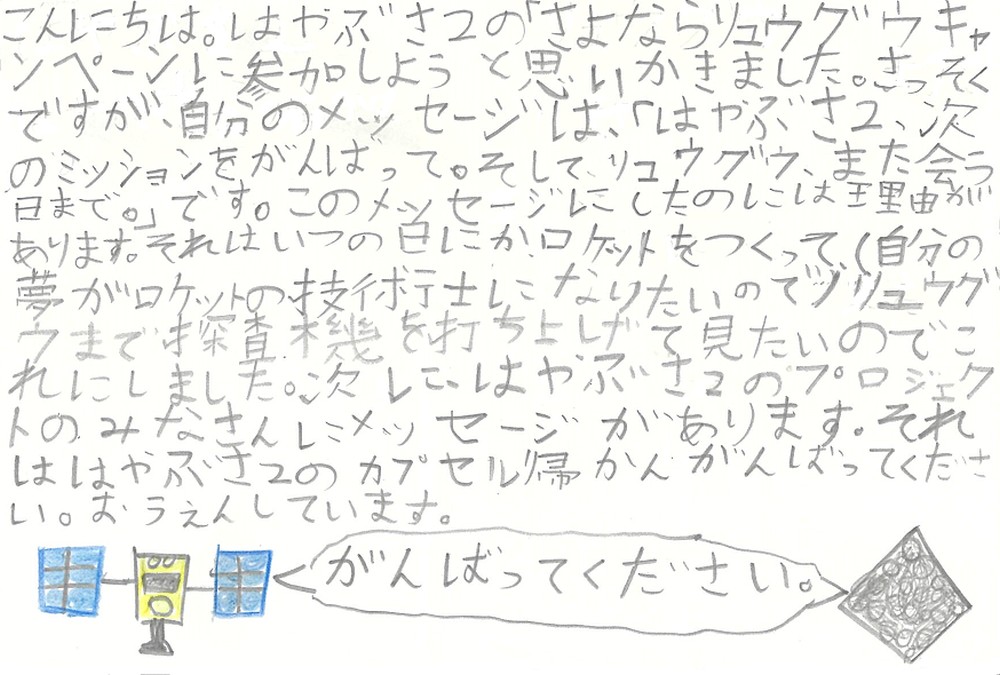 こんにちは。はやぶさ2の「さよならリュウグウキャ
ンペーンに参加しようと思いかきました。さっそく
ですが、自分のメッセージは、「はやぶさ2、次
のミッションをがんばって。そして、リュウグウ、また会う
日まで。」です。このメッセージにしたのには理由が
あります。それはいつの日にかロケットをつくって(自分の
夢がロケットの技術士になりたいので)リュウグ
ウまで探査機を打ち上げて見たいのでこ
れにしました。次に、はやぶさ2のプロジェク
トのみなさんにメッセージがあります。それ
ははやぶさ2のカプセル帰かんがんばってくださ
い。おうえんしています。
がんばってください。